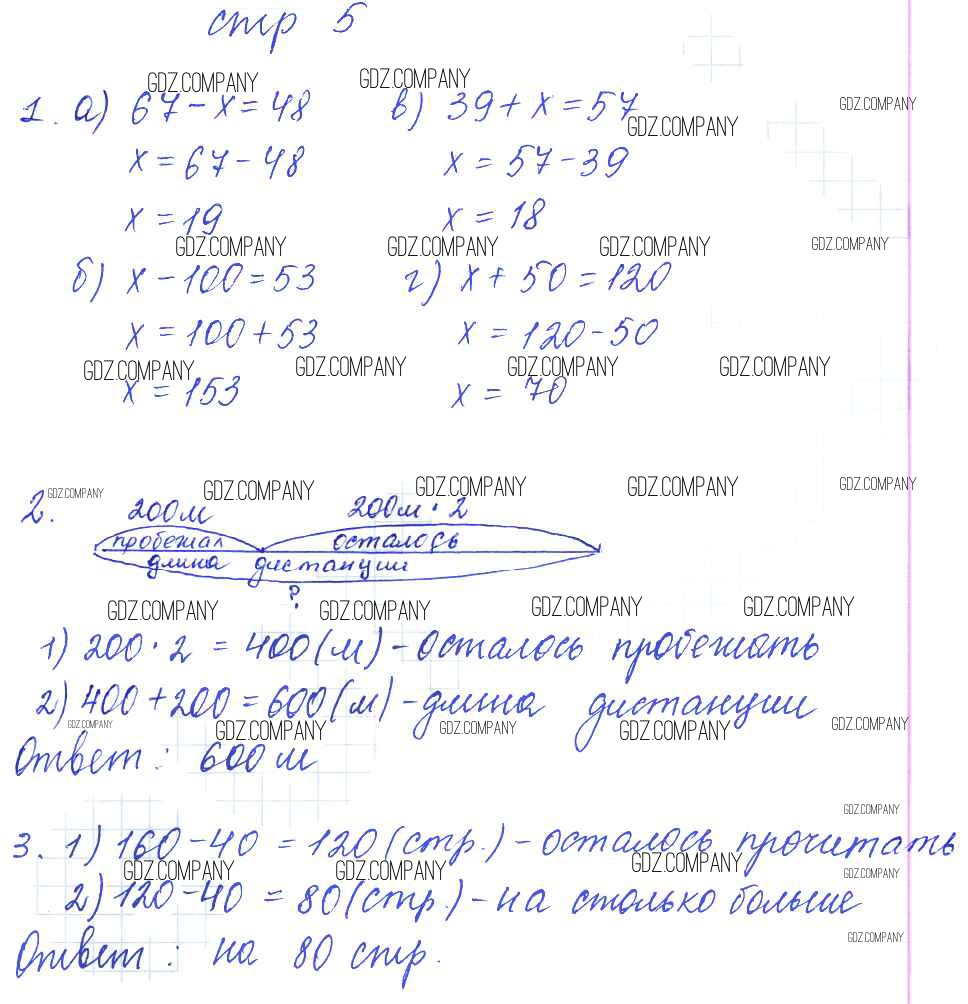 стр 5
GDZ.COMPANY GDZ.COMPANY
1. а) 67 - x = 48 в) 39 + x = 57 GDZ.COMPANY
GDZ.COMPANY
x = 67 - 48 x = 57 - 39
x = 19 x = 18
GDZ.COMPANY GDZ.COMPANY GDZ.COMPANY GDZ.COMPANY
б) x - 100 = 53 г) x + 50 = 120
x = 100 + 53 x = 120 - 50
GDZ.COMPANY GDZ.COMPANY GDZ.COMPANY GDZ.COMPANY
x = 153 x = 70
GDZ.COMPANY GDZ.COMPANY GDZ.COMPANY GDZ.COMPANY GDZ.COMPANY
2. 200м 200м · 2
пробежал осталось
длина дистанции
?
GDZ.COMPANY GDZ.COMPANY GDZ.COMPANY GDZ.COMPANY
1) 200 · 2 = 400 (м) - осталось пробежать
2) 400 + 200 = 600 (м) - длина дистанции
GDZ.COMPANY GDZ.COMPANY GDZ.COMPANY GDZ.COMPANY GDZ.COMPANY
Ответ: 600 м
GDZ.COMPANY
3. 1) 160 - 40 = 120 (стр.) - осталось прочитать
GDZ.COMPANY GDZ.COMPANY GDZ.COMPANY GDZ.COMPANY
2) 120 - 40 = 80 (стр.) - на столько больше
GDZ.COMPANY
Ответ: на 80 стр.